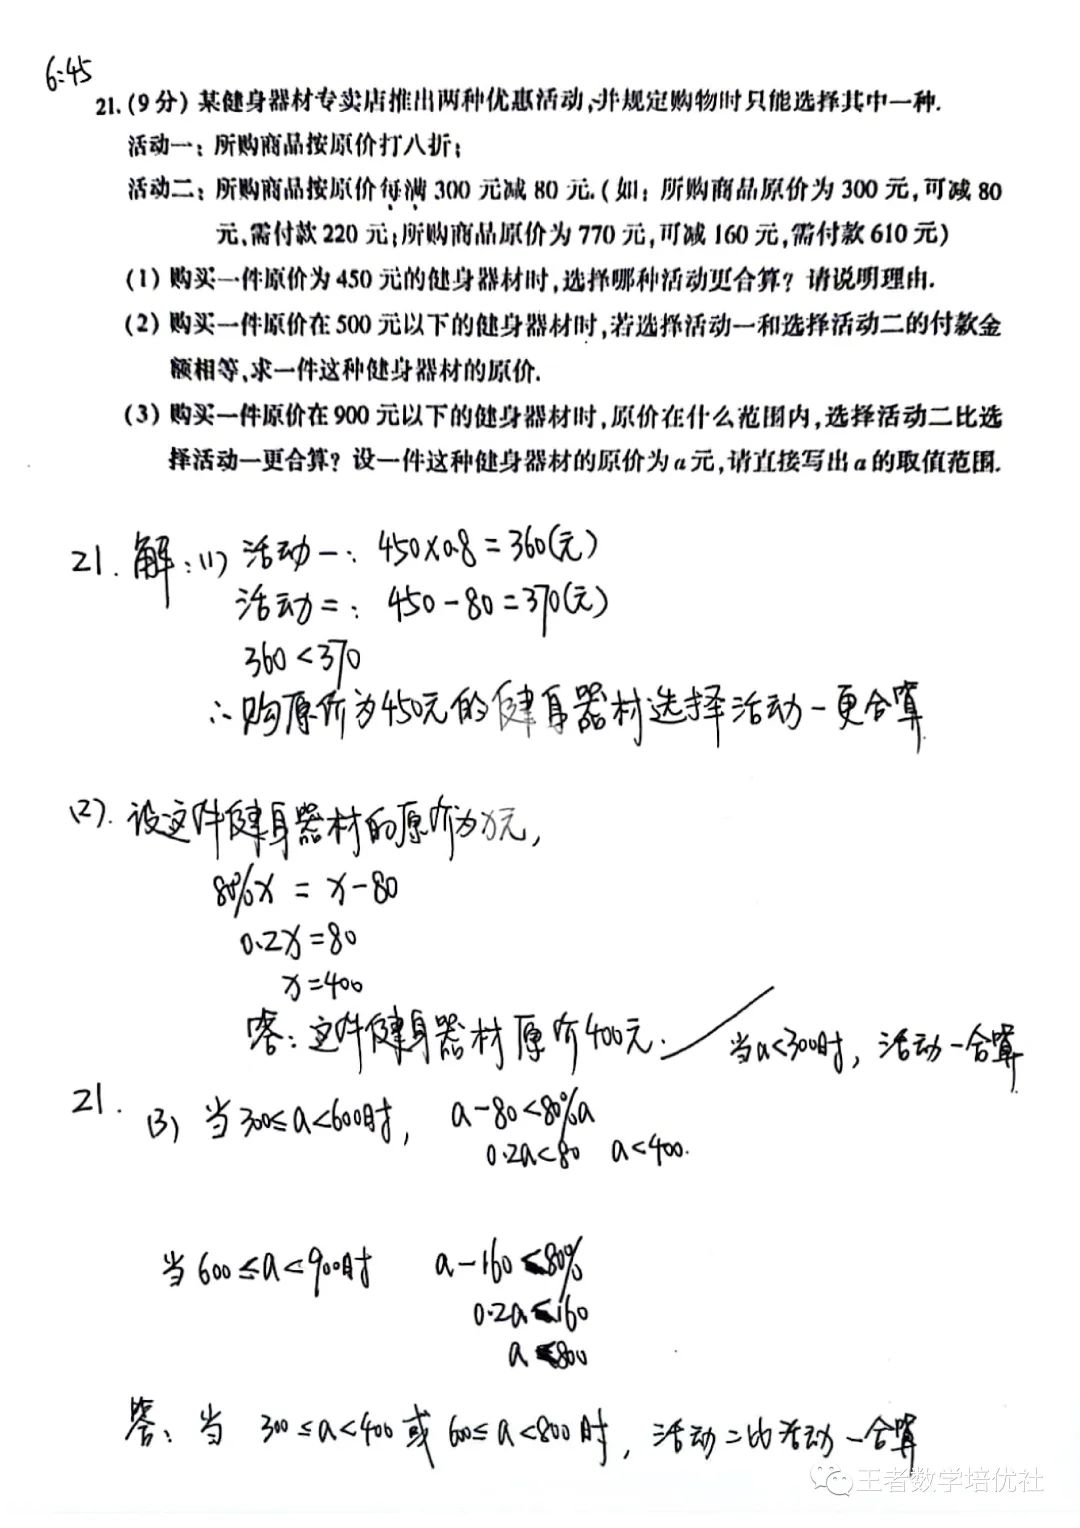 6:45
21.(9分)某健身器材专卖店推出两种优惠活动,并规定购物时只能选择其中一种.
活动一:所购商品按原价打八折;
活动二:所购商品按原价每满300元减80元.(如:所购商品原价为300元,可减80
元,需付款220元;所购商品原价为770元,可减160元,需付款610元)
(1)购买一件原价为450元的健身器材时,选择哪种活动更合算?请说明理由.
(2)购买一件原价在500元以下的健身器材时,若选择活动一和选择活动二的付款金
额相等,求一件这种健身器材的原价.
(3)购买一件原价在900元以下的健身器材时,原价在什么范围内,选择活动二比选
择活动一更合算?设一件这种健身器材的原价为a元,请直接写出a的取值范围.
21.解:(1)活动一:450×0.8=360(元)
活动二:450-80=370(元)
360<370
∴购原价为450元的健身器材选择活动一更合算
(2).设这件健身器材的原价为x元,
80%x=x-80
0.2x=80
x=400
答:这件健身器材原价400元.
当a<300时,活动一合算
21.(3)当300≤a<600时,a-80<80%a
0.2a<80 a<400.
当600≤a<900时 a-160<80%
0.2a<160
a<800
答:当300≤a<400或600≤a<800时,活动二比活动一合算
王者数学培优社